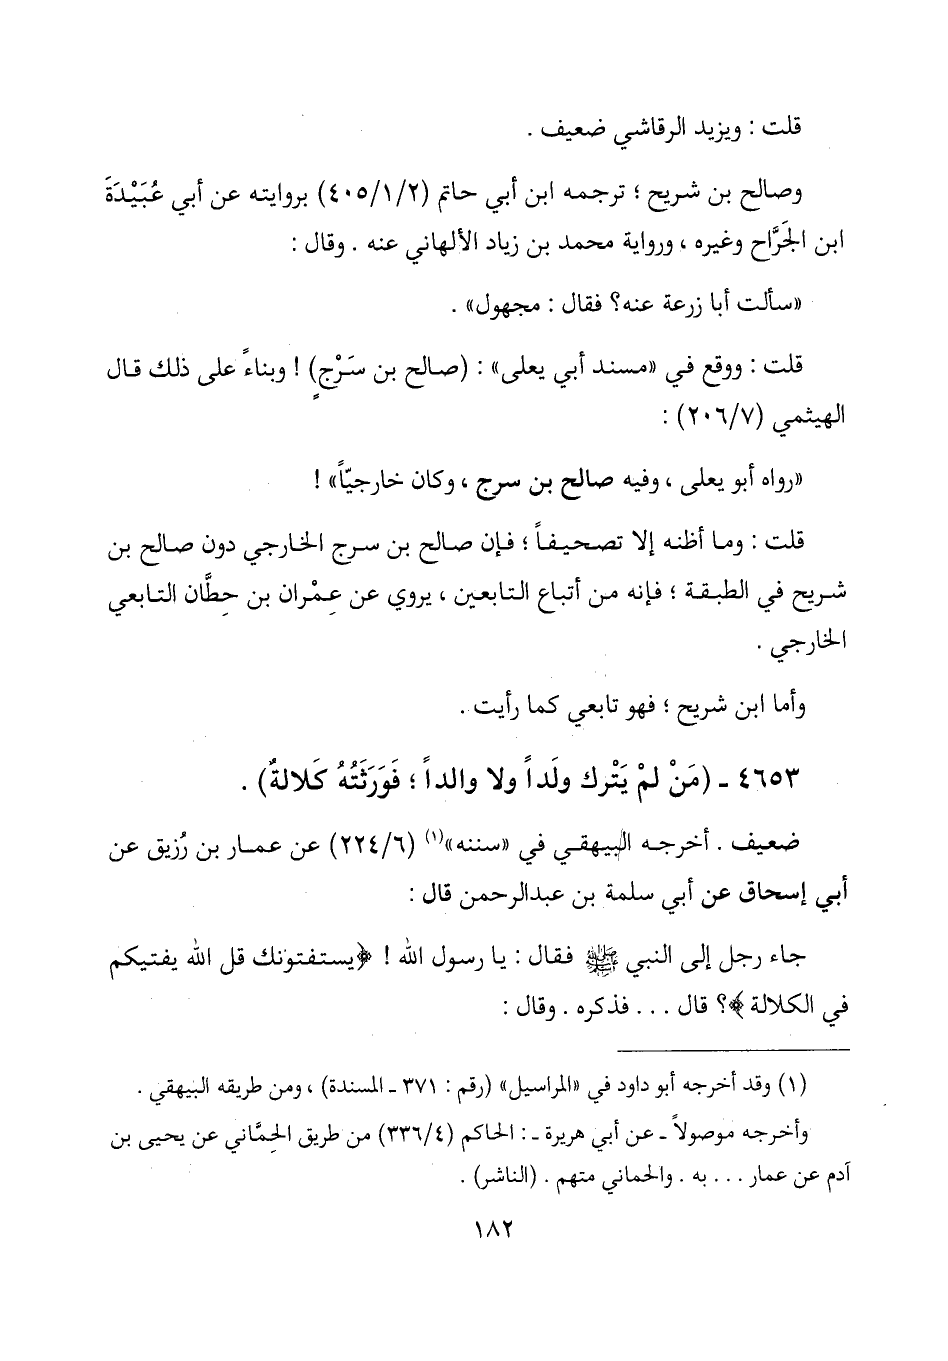 قلت : ويزيد الرقاشي ضعيف .
وصالح بن شريح ؛ ترجمه ابن أبي حاتم (٤٠٥/١/٢) بروايته عن أبي عُبَيْدَةَ
ابن الجَرَّاح وغيره ، ورواية محمد بن زياد الألهاني عنه . وقال :
«سألت أبا زرعة عنه؟ فقال : مجهول» .
قلت : ووقع في «مسند أبي يعلى» : (صالح بن سَرْجٍ) ! وبناءً على ذلك قال
الهيثمي (٢٠٦/٧) :
«رواه أبو يعلى ، وفيه صالح بن سرج ، وكان خارجيّاً» !
قلت : وما أظنه إلا تصحيفاً ؛ فإن صالح بن سرج الخارجي دون صالح بن
شريح في الطبقة ؛ فإنه من أتباع التابعين ، يروي عن عِمْران بن حِطَّان التابعي
الخارجي .
وأما ابن شريح ؛ فهو تابعي كما رأيت .
٤٦٥٣ ـ (مَنْ لمْ يَتْرك ولَداً ولا والداً ؛ فَوَرَثَتُهُ كَلالةٌ) .
ضعيف . أخرجه البيهقي في «سننه»(١) (٢٢٤/٦) عن عمار بن رُزيق عن
أبي إسحاق عن أبي سلمة بن عبدالرحمن قال :
جاء رجل إلى النبي ﷺ فقال : يا رسول الله ! ﴿يستفتونك قل الله يفتيكم
في الكلالة﴾؟ قال ... فذكره . وقال :
(١) وقد أخرجه أبو داود في «المراسيل» (رقم : ٣٧١ ـ المسندة) ، ومن طريقه البيهقي .
وأخرجه موصولاً ـ عن أبي هريرة ـ : الحاكم (٣٣٦/٤) من طريق الحِمَّاني عن يحيى بن
آدم عن عمار ... به . والحماني متهم . (الناشر) .
١٨٢